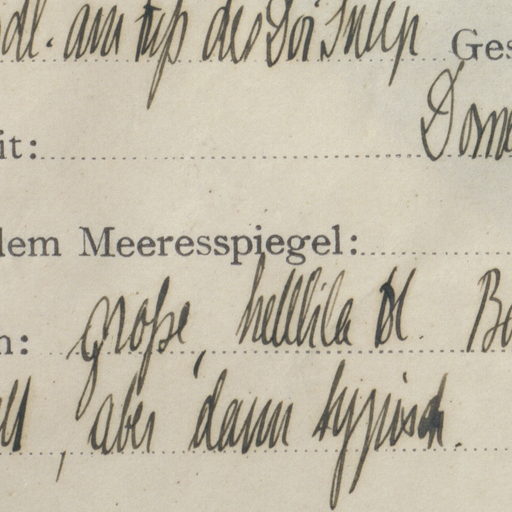 dl. am Fuß des Doi Sutep Ges
it: Dorne
dem Meeresspiegel:
n: große, helllila Bl. Be
ell, aber dann typisch.